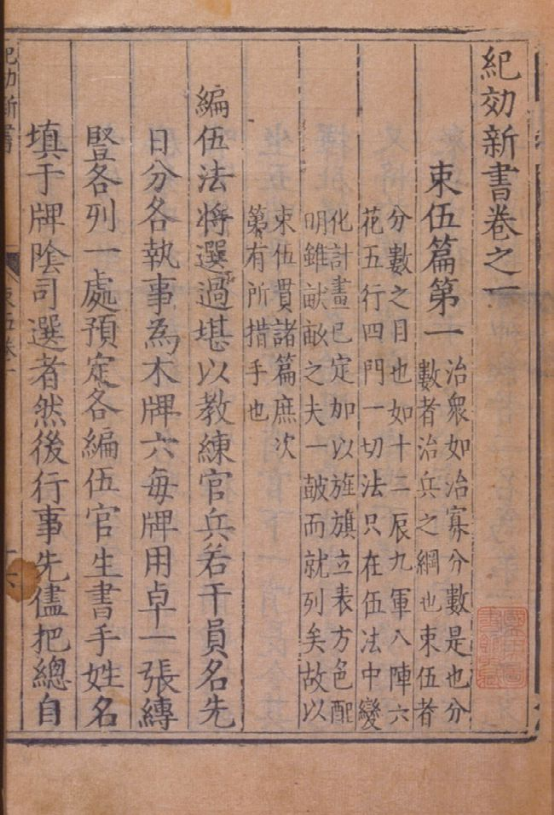 紀効新書卷之一
束伍篇第一
治衆如治寡分數是也分
數者治兵之綱也束伍者
分數之目也如十二辰九軍八陣六
花五行四門一切法只在伍法中變
化計畫已定加以旌旗立表方色配
明雖畎畝之夫一皷而就列矣故以
束伍貫諸篇庶次
第有所措手也
編伍法將選過堪以教練官兵若干員名先
日分各執事為木牌六每牌用卓一張縳
豎各列一處預定各編伍官生書手姓名
填于牌陰司選者然後行事先儘把總自
紀効新書